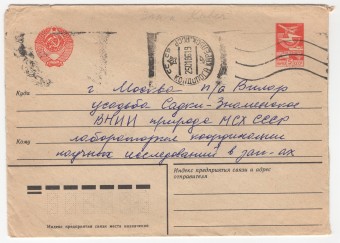 Куда г. Москва п/о Вилар
усадьба Садки-Знаменское
ВНИИ природа МСХ СССР
Кому лаборатория координации
научных исследований в зап-ах
Индекс предприятия связи и адрес
отправителя
Индекс предприятия связи места назначения